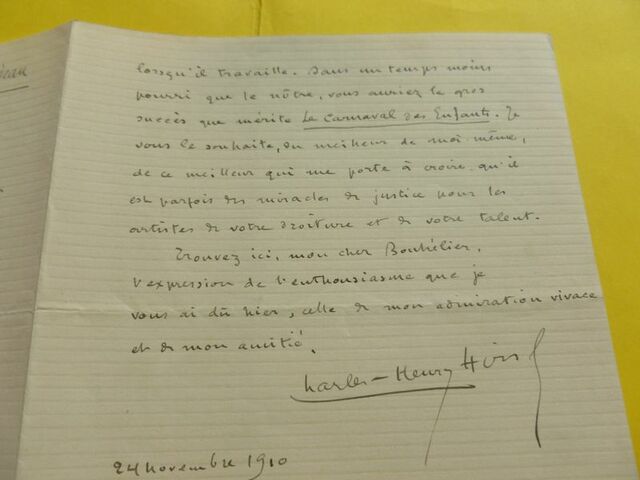 lorsqu'il travaille. Dans un temps moins
pourri que le nôtre, vous auriez le gros
succès que mérite Le Carnaval des Enfants. Je
vous le souhaite, du meilleur de moi-même,
de ce meilleur qui me porte à croire qu'il
est parfois des miracles de justice pour les
artistes de votre droiture et de votre talent.
Trouvez ici, mon cher Bouhélier,
l'expression de l'enthousiasme que je
vous ai dû hier, celle de mon admiration vivace
et de mon amitié.
Charles-Henry Hirsch
24 novembre 1910